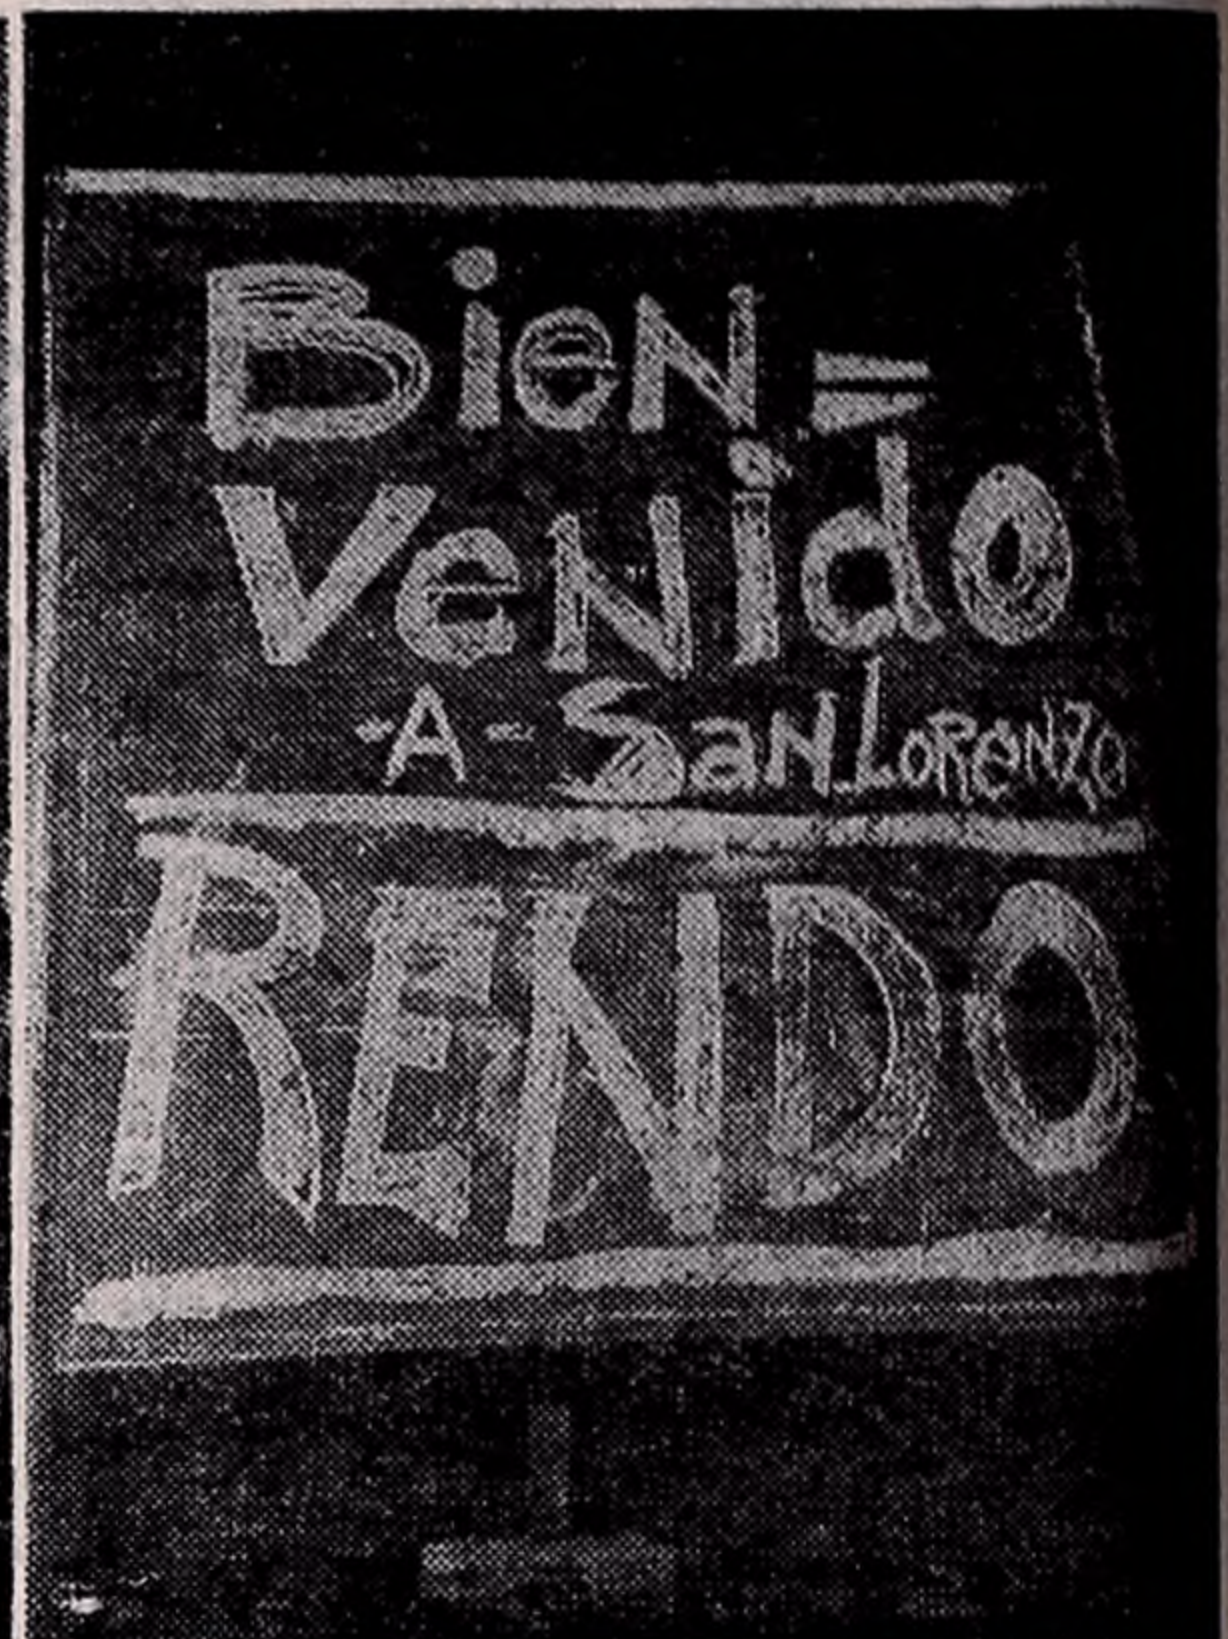 BieN=
VeNido
-A- SaN LoReNzo
RENDO